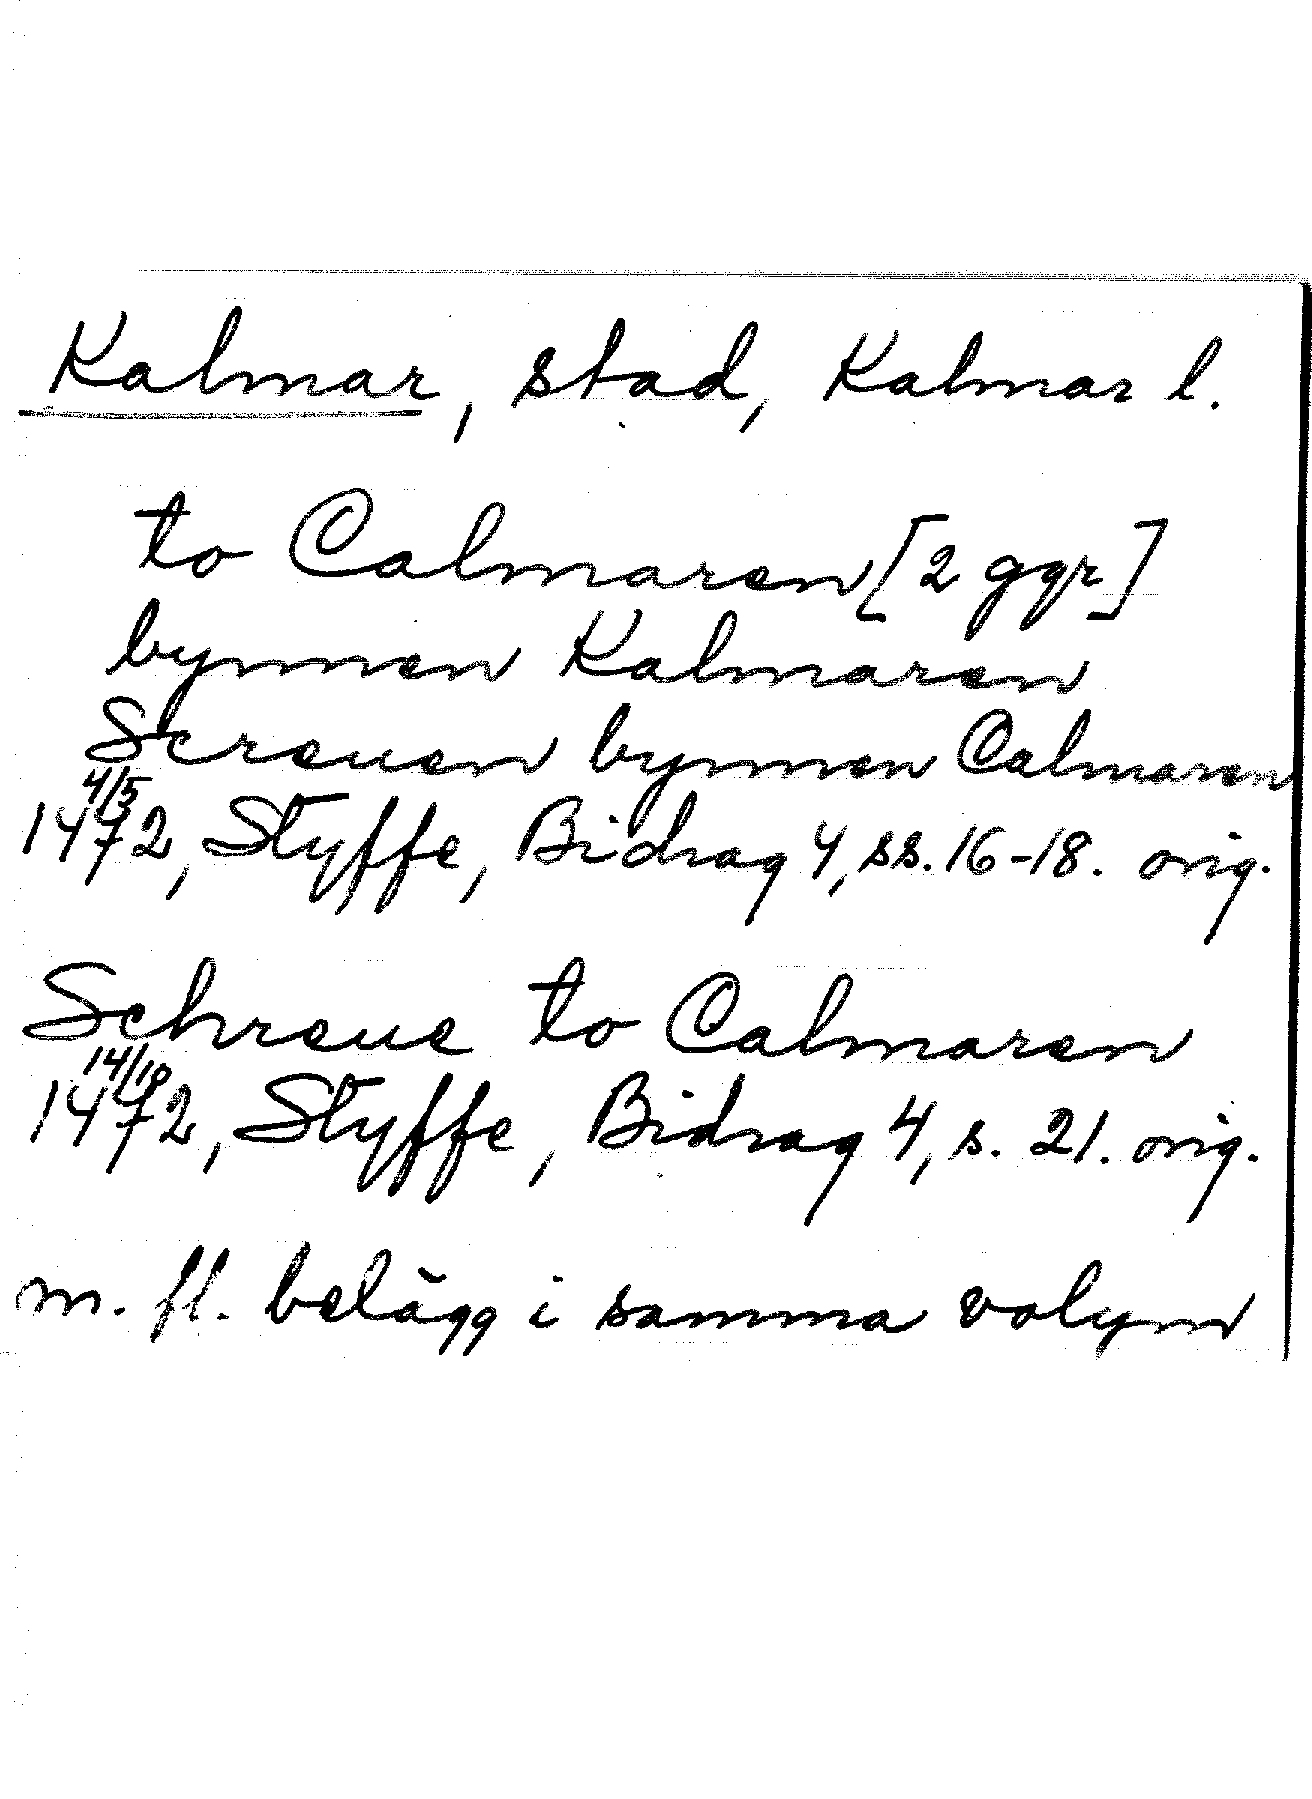 Kalmar, stad, Kalmar l.
to Calmaren [2 ggr]
bynnen Kalmaren
Screuen bynnen Calmaren
4/5
1472, Styffe, Bidrag 4, ss. 16-18. orig.
Schreue to Calmaren
14/10
1472, Styffe, Bidrag 4, s. 21. orig.
m. fl. belägg i samma volym